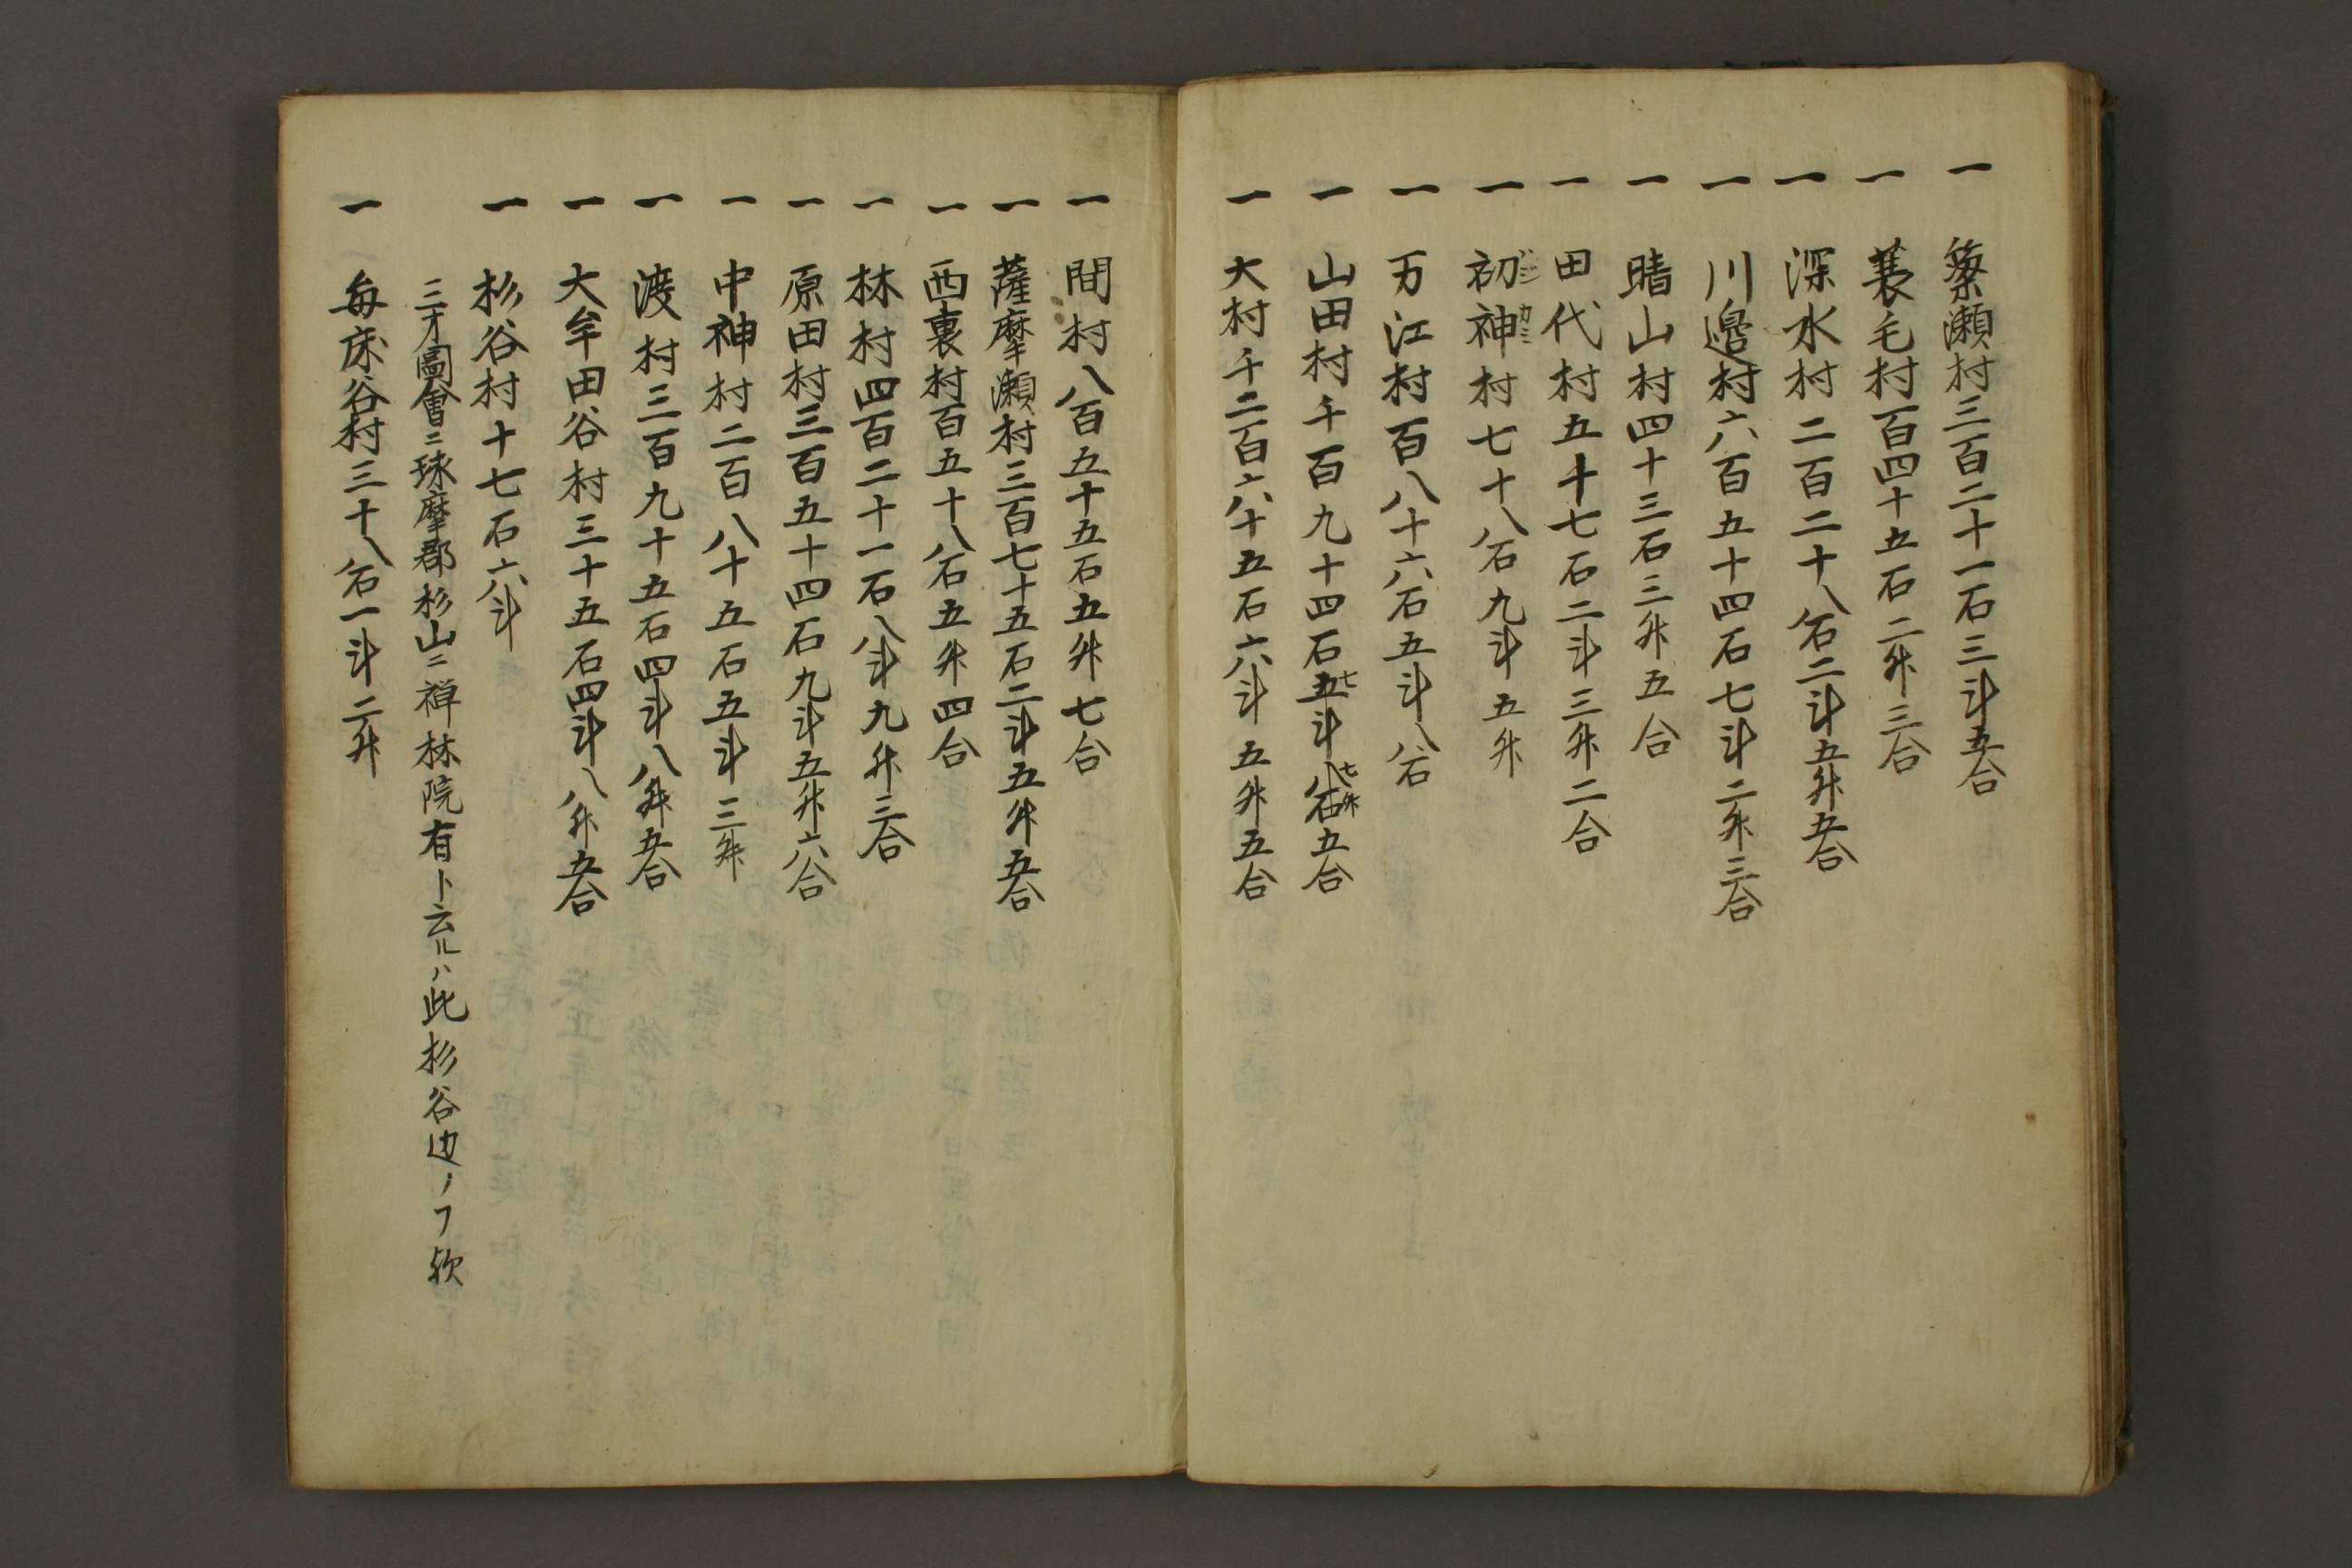 一 簗瀬村三百二十一石三斗五合
一 蓑毛村百四十五石二升三合
一 深水村二百二十八石二斗五升五合
一 川邉村六百五十四石七斗二升三合
一 晴山村四十三石三升五合
一 田代村五十七石二斗三升二合
一 初神村七十八石九斗五升
一 万江村百八十六石五斗八石
一 山田村千百九十四石五斗八石五合
一 大村千二百六十五石六斗五升五合
一 間村八百五十五石五升七合
一 薩摩瀬村三百七十五石二斗五升五合
一 西裏村百五十八石五升四合
一 林村四百二十一石八斗九升三合
一 原田村三百五十四石九斗五升六合
一 中神村二百八十五石五斗三升
一 渡村三百九十五石四斗八升五合
一 大牟田谷村三十五石四斗八升五合
一 杉谷村十七石六斗
三才圖會ニ球摩郡杉山ニ禅林院有ト云ルハ此杉谷边ノヿ欤
一 毎床谷村三十八石一斗二升